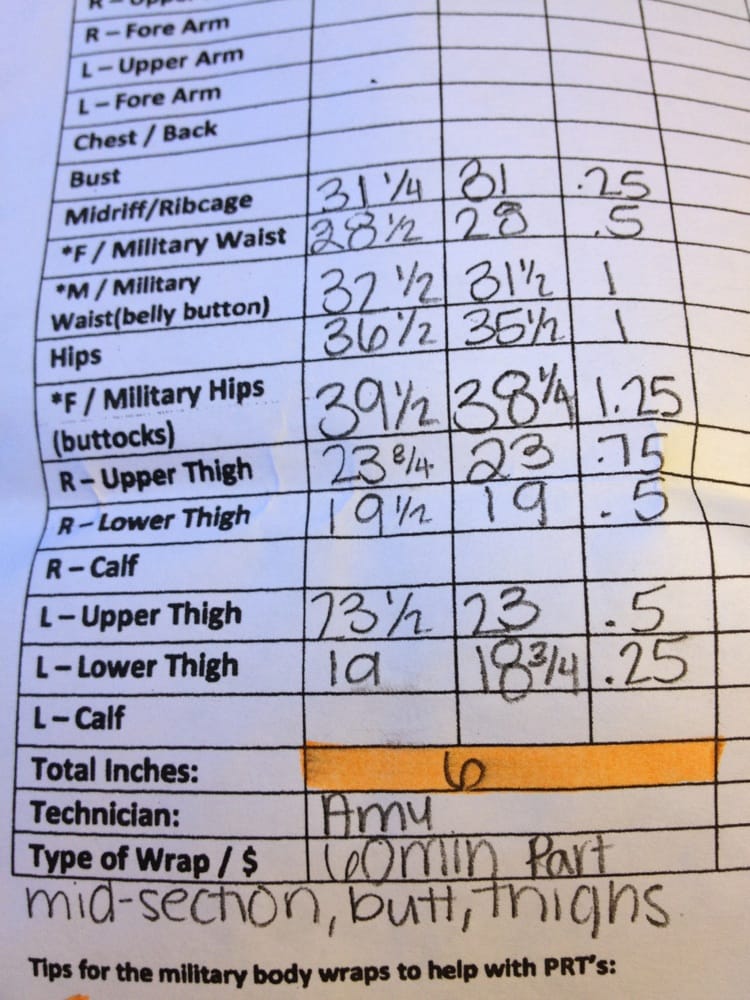 R – Fore Arm
L – Upper Arm
L – Fore Arm
Chest / Back
Bust
Midriff/Ribcage 31 1/4 31 .25
*F / Military Waist 28 1/2 28 .5
*M / Military
Waist(belly button) 32 1/2 31 1/2 1
Hips 36 1/2 35 1/2 1
*F / Military Hips
(buttocks) 39 1/2 38 1/4 1.25
R – Upper Thigh 23 3/4 23 .75
R – Lower Thigh 19 1/2 19 .5
R – Calf
L – Upper Thigh 23 1/2 23 .5
L – Lower Thigh 19 18 3/4 .25
L – Calf
Total Inches: 6
Technician: Amy
Type of Wrap / $ 60min Part
mid-section, butt, thighs
Tips for the military body wraps to help with PRT's: